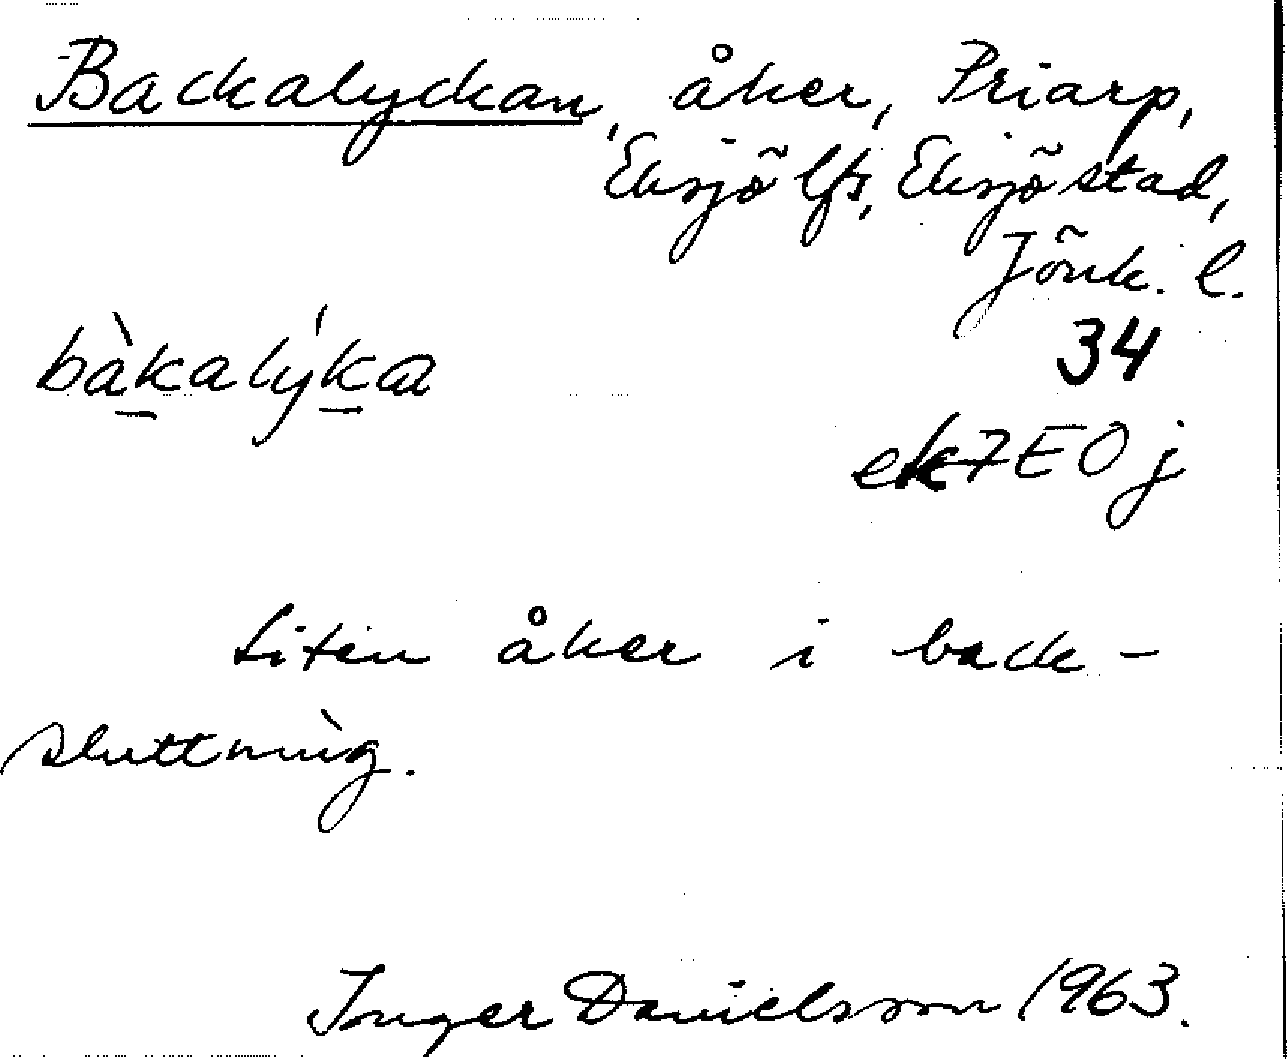 Backalyckan, åker, Priarp,
Eksjö lfs, Eksjö stad,
Jönk. l.
bàkalýka
34
ek 7E0j
Liten åker i back-
sluttning.
Inger Danielsson 1963.